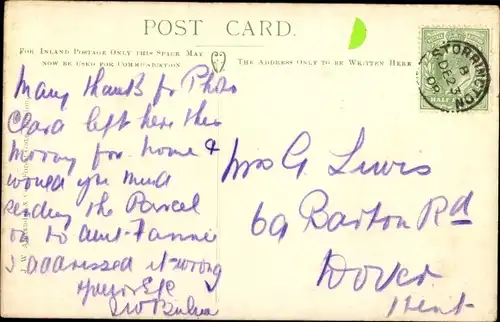 POST CARD.
FOR INLAND POSTAGE ONLY THIS SPACE MAY
NOW BE USED FOR COMMUNICATION
THE ADDRESS ONLY TO BE WRITTEN HERE
STORRINGTON
B
DE 23
08
HALF
Many thanks for Photo
Clara left here this
morng for home &
would you mind
sending the Parcel
on to aunt Fannie
I addressed it wrong
Yours Etc
Mrs G Lewis
69 Barton Rd
Dover
Kent